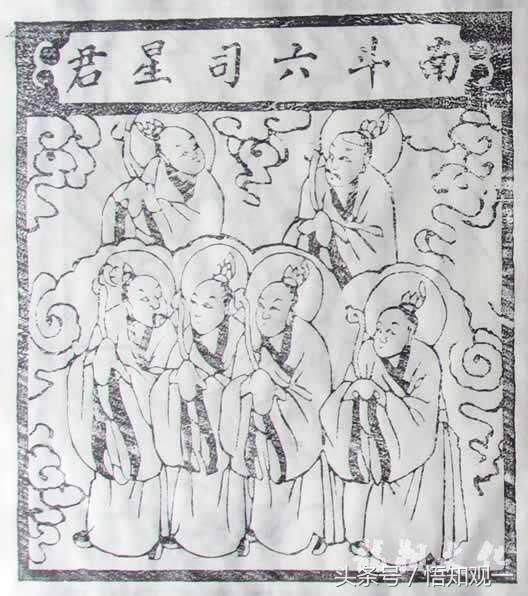 南斗六司星君
头条号/悟知观